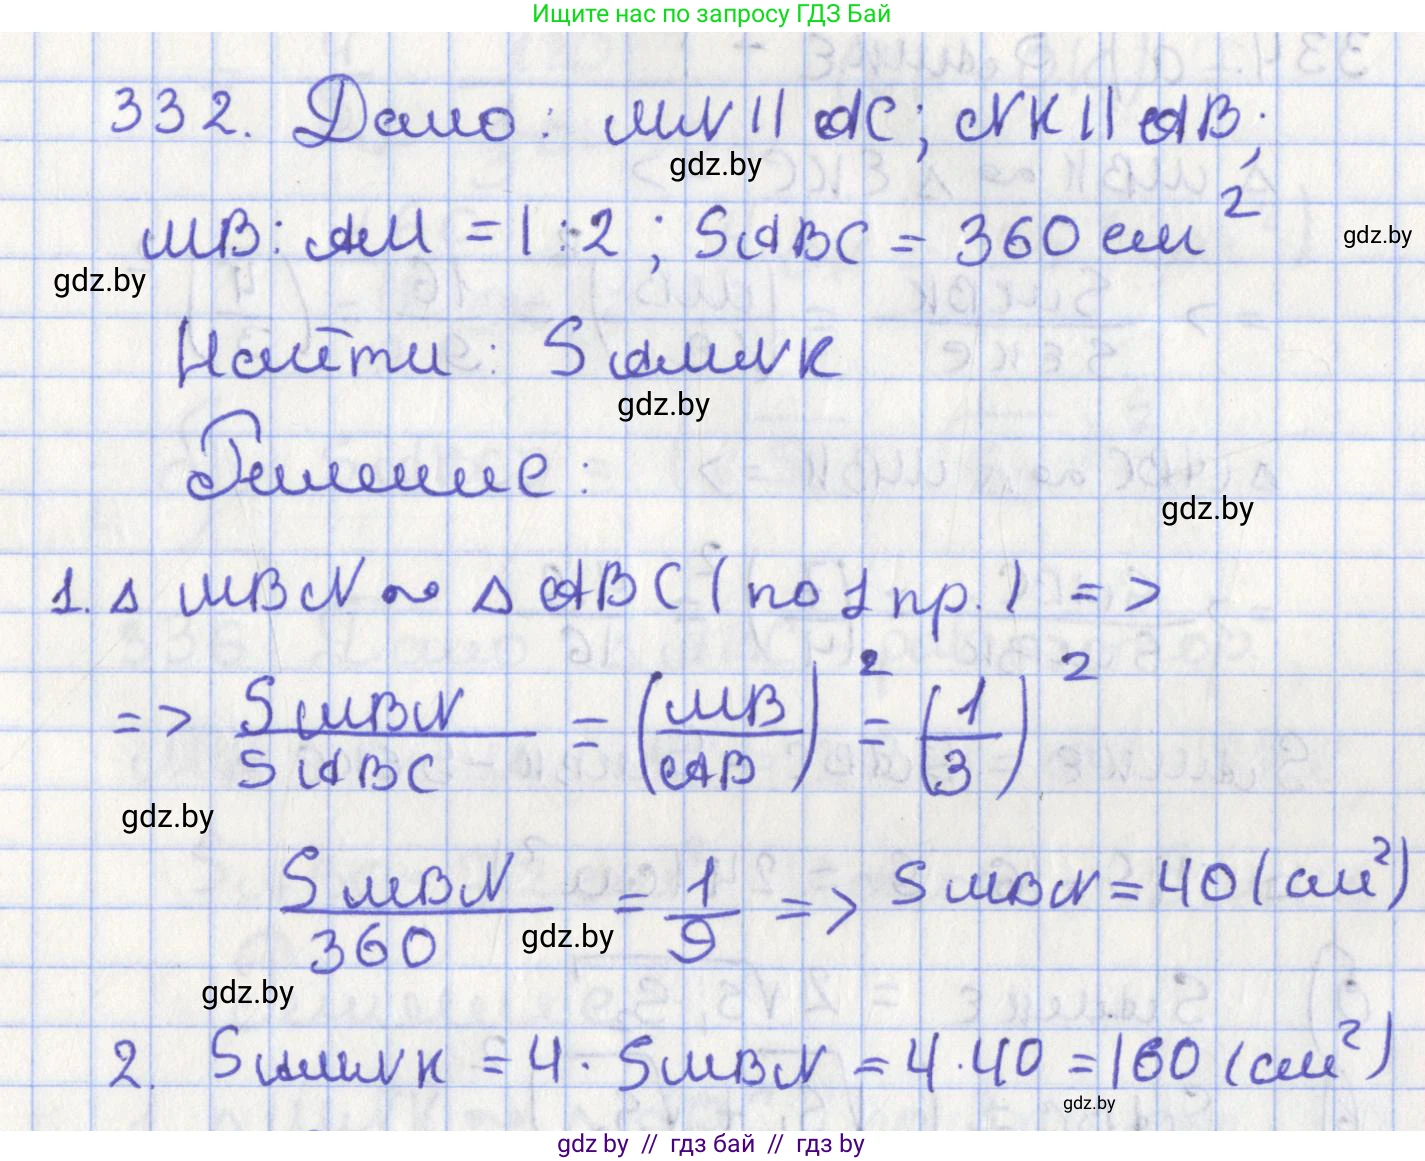 Ищите нас по запросу ГДЗ Бай
332. Дано: MN || AC; NK || AB;
gdz.by
MB : AM = 1 : 2; SABC = 360 см²
gdz.by
gdz.by
Найти: SAMNK
gdz.by
Решение:
gdz.by
1. △ MBN ∾ △ ABC (по 1 пр.) =>
=> SMBN/SABC = (MB/AB)² = (1/3)²
gdz.by
SMBN/360 = 1/9 => SMBN = 40 (см²)
gdz.by
gdz.by
2. SAMNK = 4 · SMBN = 4 · 40 = 160 (см²)
gdz.by
gdz by // гдз бай // гдз by